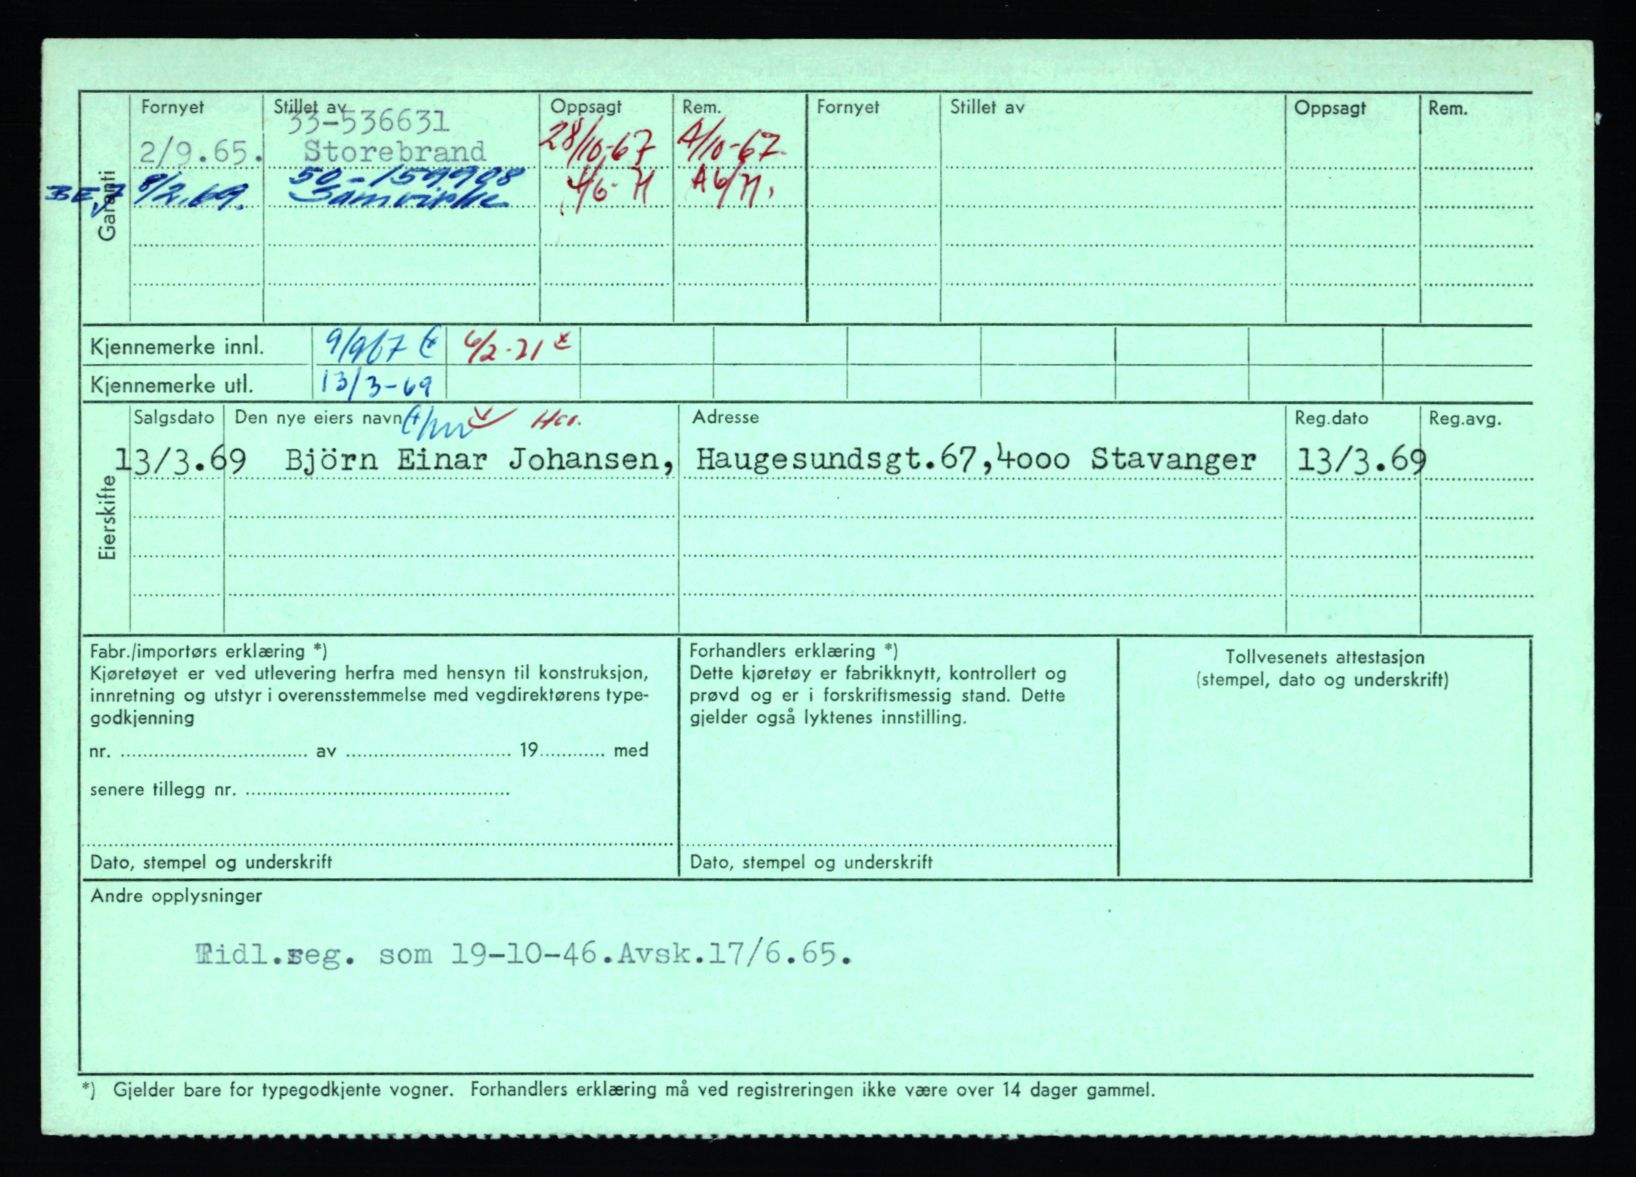 Garanti
Fornyet Stillet av Oppsagt Rem. Fornyet Stillet av Oppsagt Rem.
33-536631
2/9.65. Storebrand 28/10-67 A/10-67
8/2.69. 50-159908
Samvirke
Kjennemerke innl. 9/9 67
Kjennemerke utl. 13/3-69
Eierskifte
Salgsdato Den nye eiers navn Adresse Reg.dato Reg.avg.
13/3.69 Björn Einar Johansen, Haugesundsgt.67,4000 Stavanger 13/3.69
Fabr./importørs erklæring *)
Kjøretøyet er ved utlevering herfra med hensyn til konstruksjon,
innretning og utstyr i overensstemmelse med vegdirektørens type-
godkjenning
nr. .......... av .......... 19.......... med
senere tillegg nr. ..........
Dato, stempel og underskrift
Forhandlers erklæring *)
Dette kjøretøy er fabrikknytt, kontrollert og
prøvd og er i forskriftsmessig stand. Dette
gjelder også lyktenes innstilling.
Dato, stempel og underskrift
Tollvesenets attestasjon
(stempel, dato og underskrift)
Andre opplysninger
Tidl.reg. som 19-10-46.Avsk.17/6.65.
*) Gjelder bare for typegodkjente vogner. Forhandlers erklæring må ved registreringen ikke være over 14 dager gammel.